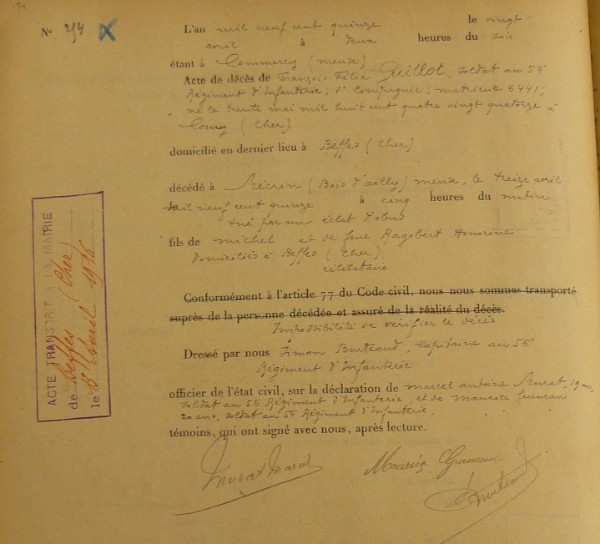 No 274 X L'an mil neuf cent quinze le vingt
avril à deux heures du soir
étant à Commercy (meuse)
Acte de décès de François Félix Guillot, soldat au 55e
Régiment d'Infanterie; 1e Compagnie; matricule 5441;
né le trente mai mil huit cent quatre vingt quatorze à
(Cher)
domicilié en dernier lieu à Beffes (Cher)
décédé à Mécrin (Bois d'ailly) meuse, le treize avril
mil neuf cent quinze à cinq heures du matin
tué par un éclat d'obus
fils de michel et de feue Ragobert Honorine
domiciliés à Beffes (Cher)
célibataire
Conformément à l'article 77 du Code civil, nous nous sommes transporté
auprès de la personne décédée et assuré de la réalité du décès.
Impossibilité de vérifier le décès
Dressé par nous Simon Burteaud, Capitaine au 55e
Régiment d'Infanterie
officier de l'état civil, sur la déclaration de marcel antoine Murat, 19 ans,
soldat au 55e Régiment d'Infanterie, et de maurice
20 ans, soldat au 55e Régiment d'Infanterie,
témoins, qui ont signé avec nous, après lecture.
Murat Marcel Maurice
Burteaud
ACTE TRANSCRIT A LA MAIRIE
de Beffes (Cher)
le 1916